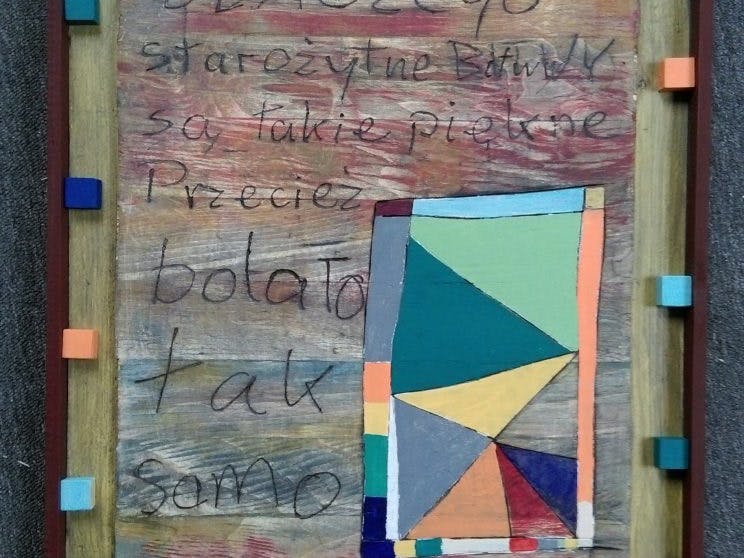 starożytne BitWY
są takie piękne
Przecież
bolało
tak
samo